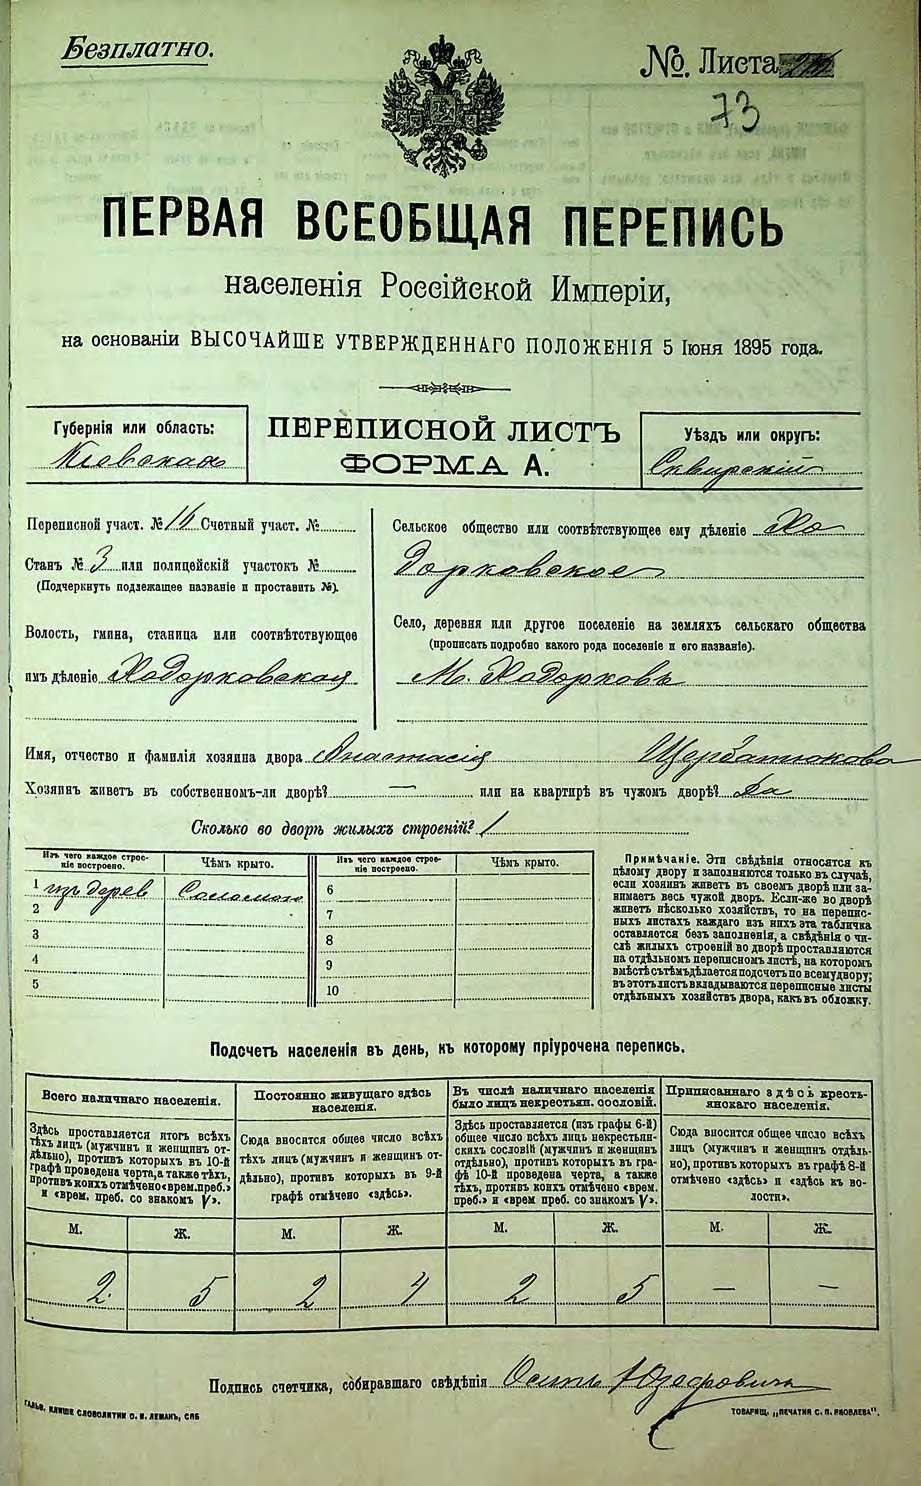 Безплатно.
№ Листа
73
ПЕРВАЯ ВСЕОБЩАЯ ПЕРЕПИСЬ
населенія Россійской Имперіи,
на основаніи ВЫСОЧАЙШЕ УТВЕРЖДЕННАГО ПОЛОЖЕНІЯ 5 Іюня 1895 года.
Губернія или область:
Кіевская
ПЕРЕПИСНОЙ ЛИСТЪ
ФОРМА А.
Уѣздъ или округъ:
Сквирскій
Переписной участ. № 16 Счетный участ. №
Станъ № 3 или полицейскій участокъ №
(Подчеркнуть подлежащее названіе и проставить №).
Волость, гмина, станица или соотвѣтствующее
имъ дѣленіе Ходорковская
Сельское общество или соотвѣтствующее ему дѣленіе Хо
дорковское
Село, деревня или другое поселеніе на земляхъ сельскаго общества
(прописать подробно какого рода поселеніе и его названіе).
М. Ходорковъ
Имя, отчество и фамилія хозяина двора Анастасія Щербатюкова
Хозяинъ живетъ въ собственномъ-ли дворѣ? — или на квартирѣ въ чужомъ дворѣ? Да
Сколько во дворѣ жилыхъ строеній? 1
Изъ чего каждое строе-
ніе построено.
Чѣмъ крыто.
Изъ чего каждое строе-
ніе построено.
Чѣмъ крыто.
1 изъ дерев Соломою
2
3
4
5
6
7
8
9
10
Примѣчаніе. Эти свѣдѣнія относятся къ
цѣлому двору и заполняются только въ случаѣ,
если хозяинъ живетъ въ своемъ дворѣ или за-
нимаетъ весь чужой дворъ. Если-же во дворѣ
живетъ нѣсколько хозяйствъ, то на перепис-
ныхъ листахъ каждаго изъ нихъ эта табличка
оставляется безъ заполненія, а свѣдѣнія о чи-
слѣ жилыхъ строеній во дворѣ проставляются
на отдѣльномъ переписномъ листѣ, на которомъ
вмѣстѣ съ тѣмъ дѣлается подсчетъ по всему двору;
въ этотъ листъ вкладываются переписные листы
отдѣльныхъ хозяйствъ двора, какъ въ обложку.
Подсчетъ населенія въ день, къ которому пріурочена перепись.
Всего наличнаго населенія.
Здѣсь проставляется итогъ всѣхъ
тѣхъ лицъ (мужчинъ и женщинъ от-
дѣльно), противъ которыхъ въ 10-й
графѣ проведена черта, а также тѣхъ,
противъ коихъ отмѣчено «врем. преб.»
и «врем. преб. со знакомъ V».
Постоянно живущаго здѣсь
населенія.
Сюда вносится общее число всѣхъ
тѣхъ лицъ (мужчинъ и женщинъ от-
дѣльно), противъ которыхъ въ 9-й
графѣ отмѣчено «здѣсь».
Въ числѣ наличнаго населенія
было лицъ некрестьян. сословій.
Здѣсь проставляется (изъ графы 6-й)
общее число всѣхъ лицъ некрестьян-
скихъ сословій (мужчинъ и женщинъ
отдѣльно), противъ которыхъ въ гра-
фѣ 10-й проведена черта, а также
тѣхъ, противъ коихъ отмѣчено «врем.
преб.» и «врем преб. со знакомъ V».
Приписаннаго здѣсь кресть-
янскаго населенія.
Сюда вносится общее число всѣхъ
лицъ (мужчинъ и женщинъ отдѣль-
но), противъ которыхъ въ графѣ 8-й
отмѣчено «здѣсь» и «здѣсь къ во-
лости».
М. Ж. М. Ж. М. Ж. М. Ж.
2 5 2 4 2 5 — —
Подпись счетчика, собиравшаго свѣдѣнія Осипъ
ГАЛЬВ. КЛИШЕ СЛОВОЛИТНИ О. И. ЛЕМАНЪ, СПБ
ТОВАРИЩ. „ПЕЧАТНЯ С. П. ЯКОВЛЕВА“.